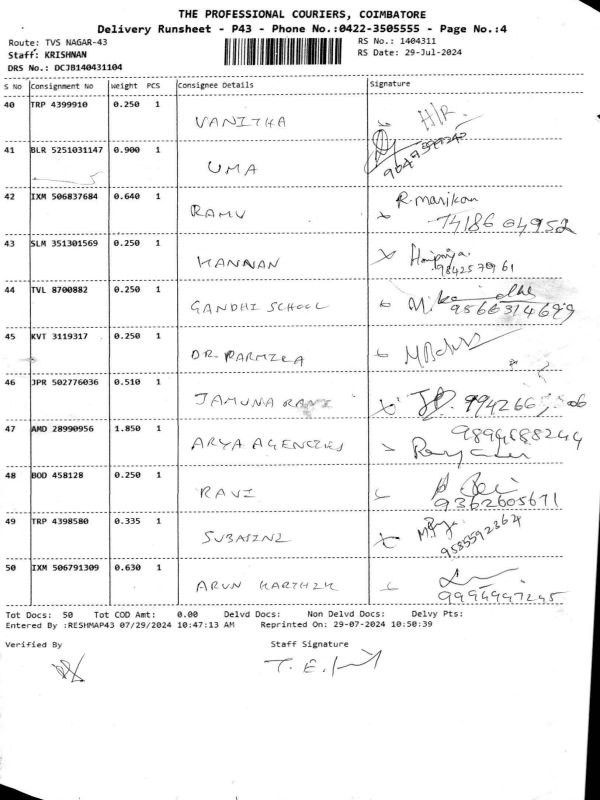 THE PROFESSIONAL COURIERS, COIMBATORE
Delivery Runsheet - P43 - Phone No.:0422-3505555 - Page No.:4
Route: TVS NAGAR-43 RS No.: 1404311
Staff: KRISHNAN RS Date: 29-Jul-2024
DRS No.: DCJB140431104
S No Consignment No Weight PCS Consignee Details Signature
40 TRP 4399910 0.250 1 VANITHA H/R.
41 BLR 5251031147 0.900 1 UMA
42 IXM 506837684 0.640 1 RAMU R. Marikan
74186 04952
43 SLM 351301569 0.250 1 KANNAN
9842579961
44 TVL 8700882 0.250 1 GANDHI SCHOOL
9566314699
45 KVT 3119317 0.250 1 DR. PARMILA
46 JPR 502776036 0.510 1 JAMUNA RANI
47 AMD 28990956 1.850 1 ARYA AGENCIES 9894688244
48 BOD 458128 0.250 1 RAVI
9362605671
49 TRP 4398580 0.335 1 SUBASINI
9585592364
50 IXM 506791309 0.630 1 ARUN KARTHIK
9994947245
Tot Docs: 50 Tot COD Amt: 0.00 Delvd Docs: Non Delvd Docs: Delvy Pts:
Entered By :RESHMAP43 07/29/2024 10:47:13 AM Reprinted On: 29-07-2024 10:50:39
Verified By Staff Signature